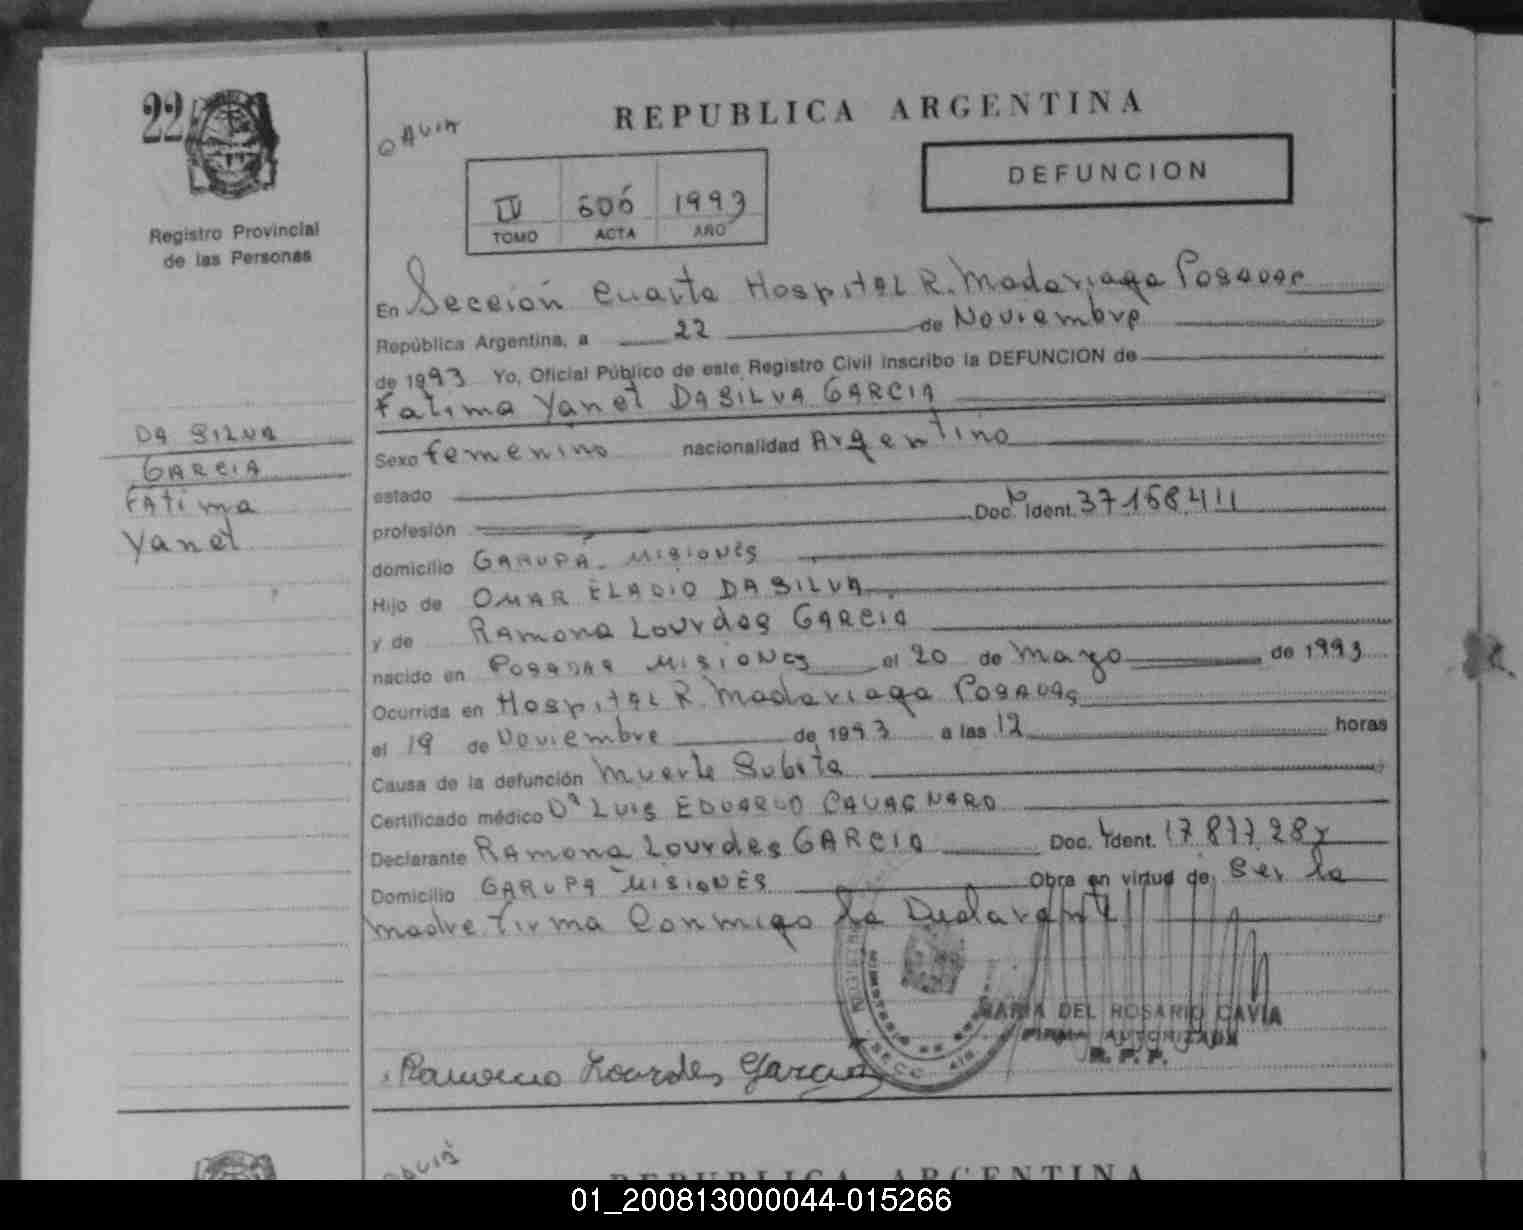 22
Registro Provincial
de las Personas
DA SILVA
GARCIA
FÁtima
Yanet
CAVIA
REPUBLICA ARGENTINA
DEFUNCION
IV 606 1993
TOMO ACTA AÑO
En Sección Cuarta Hospital R. Madariaga Posadas
República Argentina, a 22 de Noviembre
de 1993 Yo, Oficial Público de este Registro Civil inscribo la DEFUNCION de
Fatima Yanet DA SILVA GARCIA
Sexo femenino nacionalidad Argentino
estado
profesión Doc. Ident. 37158411
domicilio GARUPÁ - MISIONES
Hijo de OMAR ELADIO DA SILVA
y de RAmona Lourdes GARCIA
nacido en POSADAS MISIONES el 20 de mayo de 1993
Ocurrida en Hospital R. Madariaga Posadas
el 19 de Noviembre de 1993 a las 12 horas
Causa de la defunción Muerte Subita
Certificado médico Dr LUIS EDUARDO CAVAGNARO
Declarante RAmona Lourdes GARCIA Doc. Ident. 17.877.287
Domicilio GARUPA MISIONES Obra en virtud de: Ser la
madre. Firma Conmigo la Declarante
MARIA DEL ROSARIO CAVIA
FIRMA AUTORIZADA
R. P. P.
SECC. 4ta
Ramona Lourdes Garcia
CAVIA
REPUBLICA ARGENTINA
01_200813000044-015266